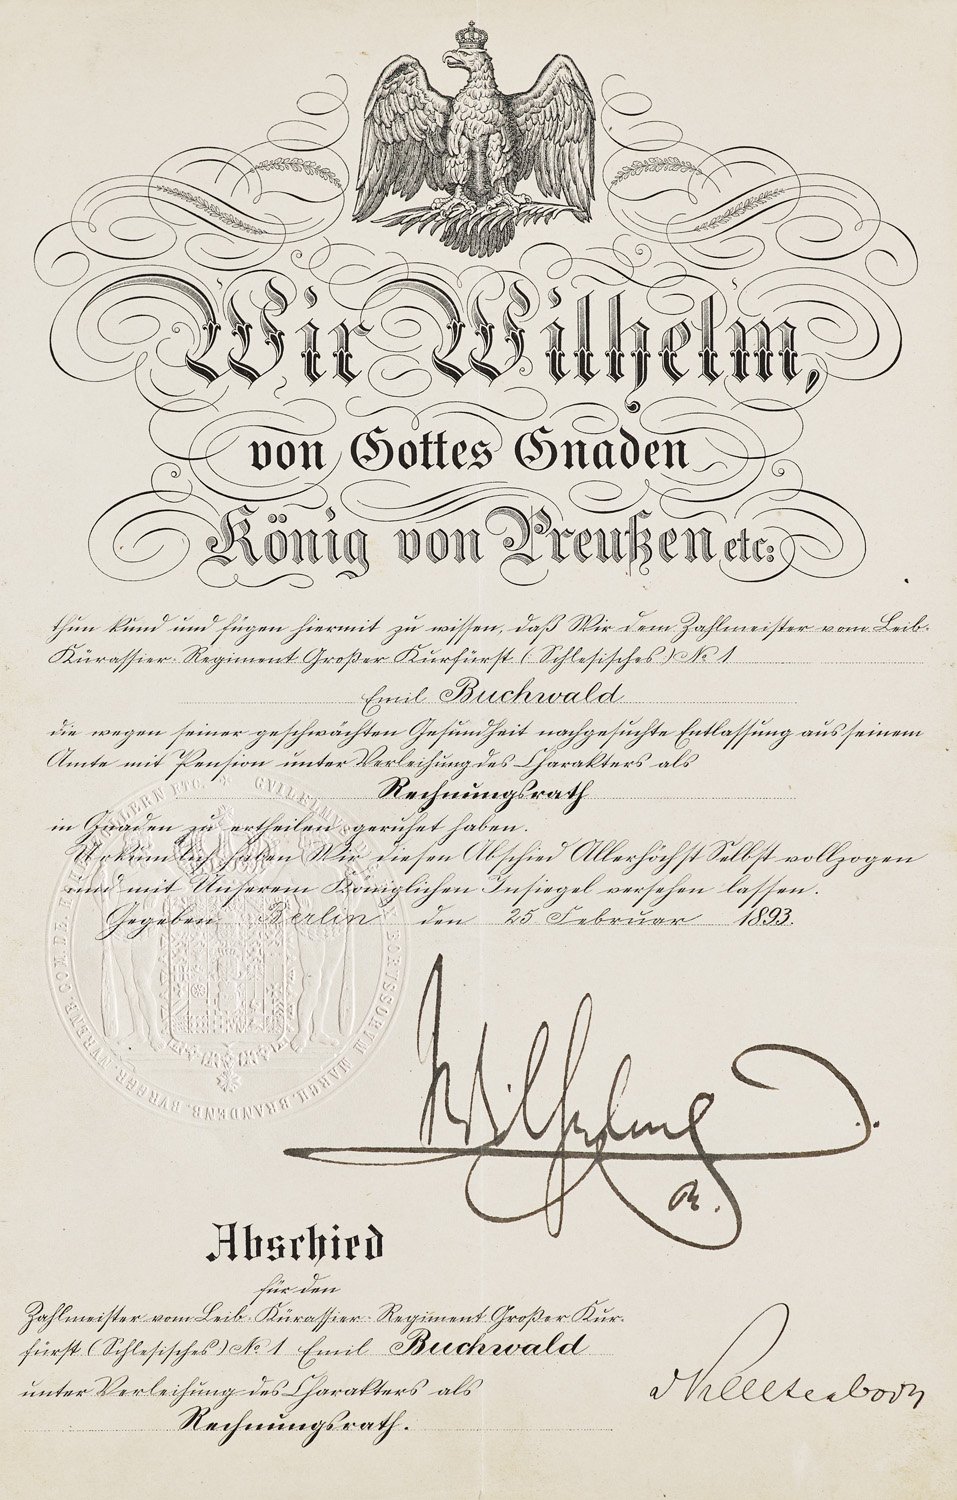 Wir Wilhelm,
von Gottes Gnaden
König von Preußen etc:
thun kund und fügen hiermit zu wissen, daß Wir dem Zahlmeister vom Leib-
Kürassier-Regiment Großer Kurfürst (Schlesisches) No 1
Emil Buchwald
die wegen seiner geschwächten Gesundheit nachgesuchte Entlassung aus seinem
Amte mit Pension unter Verleihung des Charakters als
Rechnungsrath
in Gnaden zu ertheilen geruhet haben.
Urkundlich haben Wir diesen Abschied Allerhöchst Selbst vollzogen
und mit Unserem Königlichen Insiegel versehen lassen.
Gegeben Berlin den 25 Februar 1893.
Wilhelm
R.
Abschied
für den
Zahlmeister vom Leib-Kürassier-Regiment Großer Kur-
fürst (Schlesisches) No 1 Emil Buchwald
unter Verleihung des Charakters als
Rechnungsrath.